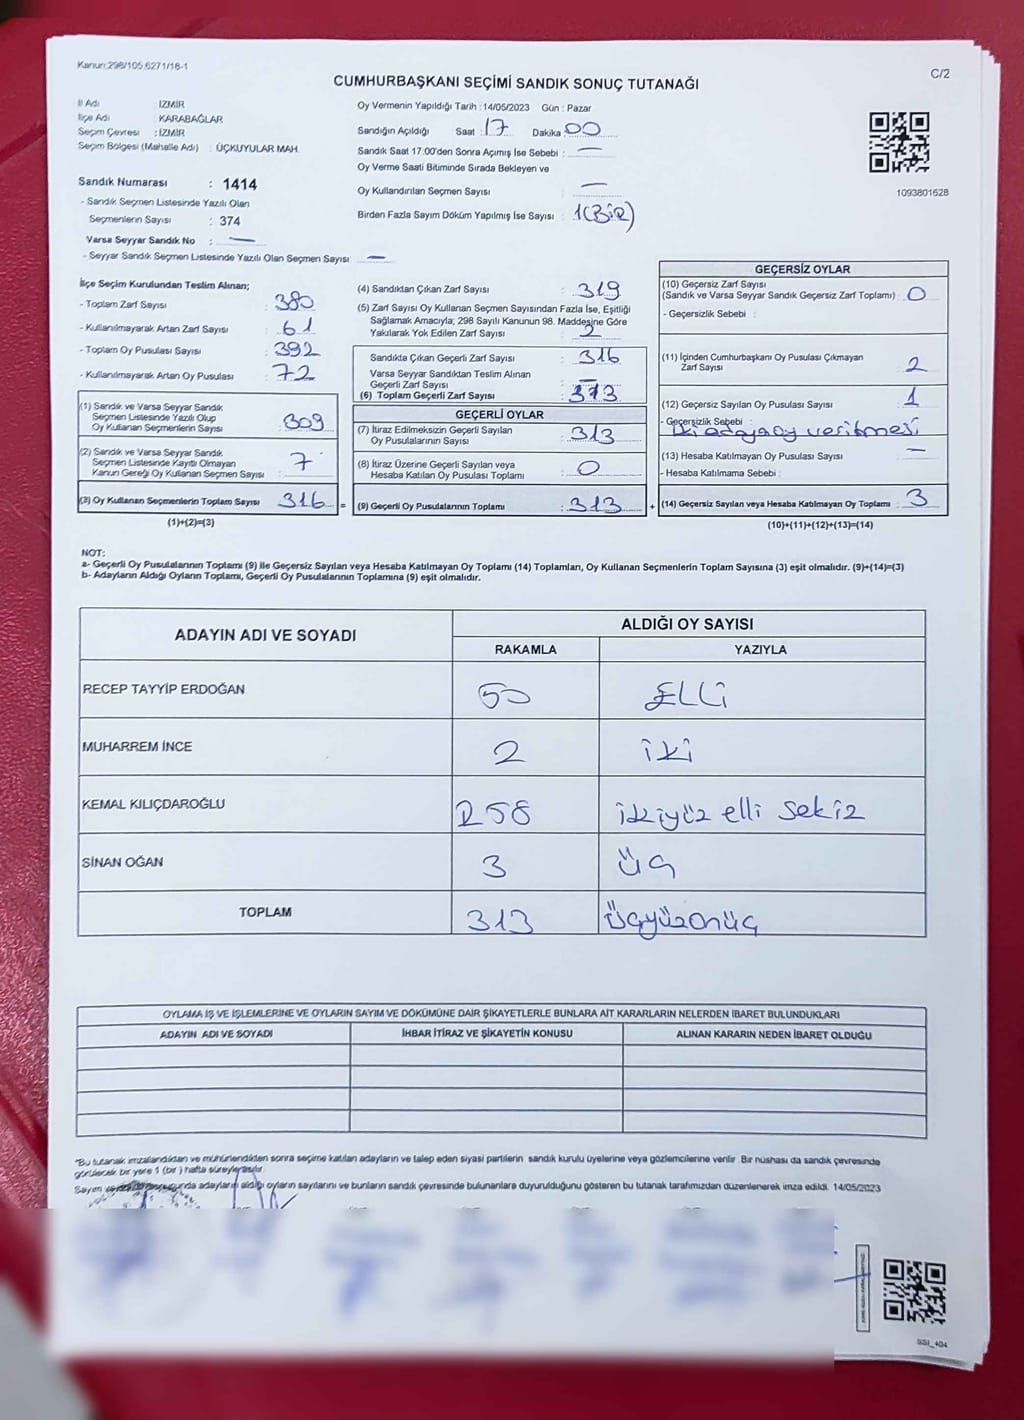 Kanun:298/105,6271/18-1
C/2
CUMHURBAŞKANI SEÇİMİ SANDIK SONUÇ TUTANAĞI
İl Adı : İZMİR
İlçe Adı : KARABAĞLAR
Seçim Çevresi : İZMİR
Seçim Bölgesi (Mahalle Adı) : ÜÇKUYULAR MAH.
Sandık Numarası : 1414
- Sandık Seçmen Listesinde Yazılı Olan
Seçmenlerin Sayısı : 374
Varsa Seyyar Sandık No : —
- Seyyar Sandık Seçmen Listesinde Yazılı Olan Seçmen Sayısı : —
Oy Vermenin Yapıldığı Tarih : 14/05/2023 Gün : Pazar
Sandığın Açıldığı Saat : 17 Dakika : 00
Sandık Saat 17:00'den Sonra Açımış İse Sebebi : —
Oy Verme Saati Bitiminde Sırada Bekleyen ve
Oy Kullandırılan Seçmen Sayısı : —
Birden Fazla Sayım Döküm Yapılmış İse Sayısı : 1(BİR)
1093801628
İlçe Seçim Kurulundan Teslim Alınan;
- Toplam Zarf Sayısı : 380
- Kullanılmayarak Artan Zarf Sayısı : 61
- Toplam Oy Pusulası Sayısı : 392
- Kullanılmayarak Artan Oy Pusulası : 72
(1) Sandık ve Varsa Seyyar Sandık
Seçmen Listesinde Yazılı Olup
Oy Kullanan Seçmenlerin Sayısı : 309
(2) Sandık ve Varsa Seyyar Sandık
Seçmen Listesinde Kayıtlı Olmayan
Kanun Gereği Oy Kullanan Seçmen Sayısı : 7
(3) Oy Kullanan Seçmenlerin Toplam Sayısı : 316 =
(1)+(2)=(3)
(4) Sandıktan Çıkan Zarf Sayısı : 319
(5) Zarf Sayısı Oy Kullanan Seçmen Sayısından Fazla İse, Eşitliği
Sağlamak Amacıyla; 298 Sayılı Kanunun 98. Maddesine Göre
Yakılarak Yok Edilen Zarf Sayısı : 2
Sandıkta Çıkan Geçerli Zarf Sayısı : 316
Varsa Seyyar Sandıktan Teslim Alınan
Geçerli Zarf Sayısı : —
(6) Toplam Geçerli Zarf Sayısı : 313
GEÇERLİ OYLAR
(7) İtiraz Edilmeksizin Geçerli Sayılan
Oy Pusulalarının Sayısı : 313
(8) İtiraz Üzerine Geçerli Sayılan veya
Hesaba Katılan Oy Pusulası Toplamı : 0
(9) Geçerli Oy Pusulalarının Toplamı : 313 +
GEÇERSİZ OYLAR
(10) Geçersiz Zarf Sayısı
(Sandık ve Varsa Seyyar Sandık Geçersiz Zarf Toplamı) : 0
- Geçersizlik Sebebi :
(11) İçinden Cumhurbaşkanı Oy Pusulası Çıkmayan
Zarf Sayısı : 2
(12) Geçersiz Sayılan Oy Pusulası Sayısı : 1
- Geçersizlik Sebebi :
iki adaya oy verilmesi
(13) Hesaba Katılmayan Oy Pusulası Sayısı : —
- Hesaba Katılmama Sebebi :
(14) Geçersiz Sayılan veya Hesaba Katılmayan Oy Toplamı : 3
(10)+(11)+(12)+(13)=(14)
NOT:
a- Geçerli Oy Pusulalarının Toplamı (9) ile Geçersiz Sayılan veya Hesaba Katılmayan Oy Toplamı (14) Toplamları, Oy Kullanan Seçmenlerin Toplam Sayısına (3) eşit olmalıdır. (9)+(14)=(3)
b- Adayların Aldığı Oyların Toplamı, Geçerli Oy Pusulalarının Toplamına (9) eşit olmalıdır.
ADAYIN ADI VE SOYADI
ALDIĞI OY SAYISI
RAKAMLA YAZIYLA
RECEP TAYYİP ERDOĞAN 50 ELLİ
MUHARREM İNCE 2 iki
KEMAL KILIÇDAROĞLU 258 ikiyüz elli sekiz
SİNAN OĞAN 3 üç
TOPLAM 313 üçyüzonüç
OYLAMA İŞ VE İŞLEMLERİNE VE OYLARIN SAYIM VE DÖKÜMÜNE DAİR ŞİKAYETLERLE BUNLARA AİT KARARLARIN NELERDEN İBARET BULUNDUKLARI
ADAYIN ADI VE SOYADI İHBAR İTİRAZ VE ŞİKAYETİN KONUSU ALINAN KARARIN NEDEN İBARET OLDUĞU
"Bu tutanak imzalandıktan ve mühürlendikten sonra seçime katılan adayların ve talep eden siyasi partilerin sandık kurulu üyelerine veya gözlemcilerine verilir. Bir nüshası da sandık çevresinde
görülecek bir yere 1 (bir) hafta süreyle asılır.
Sayım adayların aldığı oyların sayılarını ve bunların sandık çevresinde bulunanlara duyurulduğunu gösteren bu tutanak tarafımızdan düzenlenerek imza edildi. 14/05/2023